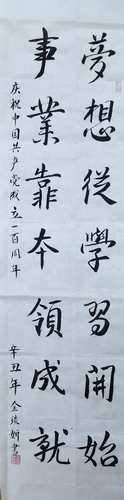 夢想從學習開始
事業靠本領成就
庆祝中国共产党成立一百周年
辛丑年金琰妍書